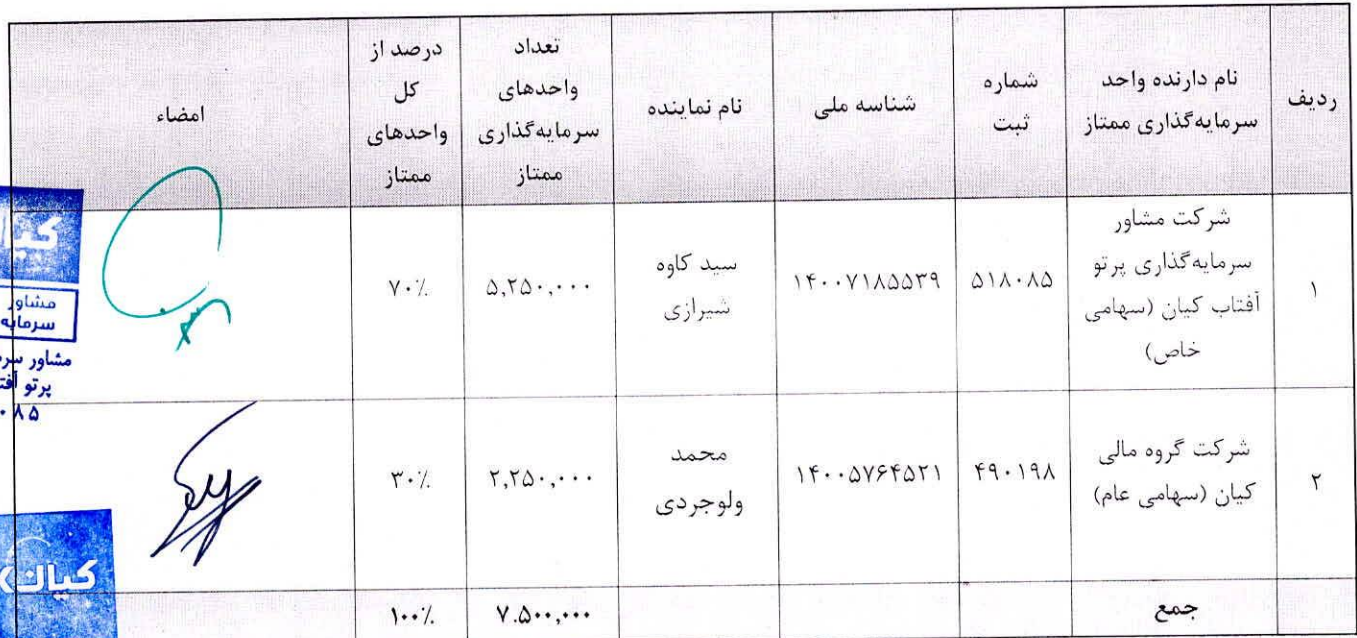 ردیف
نام دارنده واحد
سرمایه‌گذاری ممتاز
شماره
ثبت
شناسه ملی
نام نماینده
تعداد
واحدهای
سرمایه‌گذاری
ممتاز
درصد از
کل
واحدهای
ممتاز
امضاء
۱
شرکت مشاور
سرمایه‌گذاری پرتو
آفتاب کیان (سهامی
خاص)
۵۱۸۰۸۵
۱۴۰۰۷۱۸۵۵۳۹
سید کاوه
شیرازی
۵,۲۵۰,۰۰۰
۷۰٪
۲
شرکت گروه مالی
کیان (سهامی عام)
۴۹۰۱۹۸
۱۴۰۰۵۷۶۴۵۲۱
محمد
ولوجردی
۲,۲۵۰,۰۰۰
۳۰٪
جمع
۷.۵۰۰,۰۰۰
۱۰۰٪
مشاور
سرمایه
مشاور
پرتو
۰۸۵
کیان